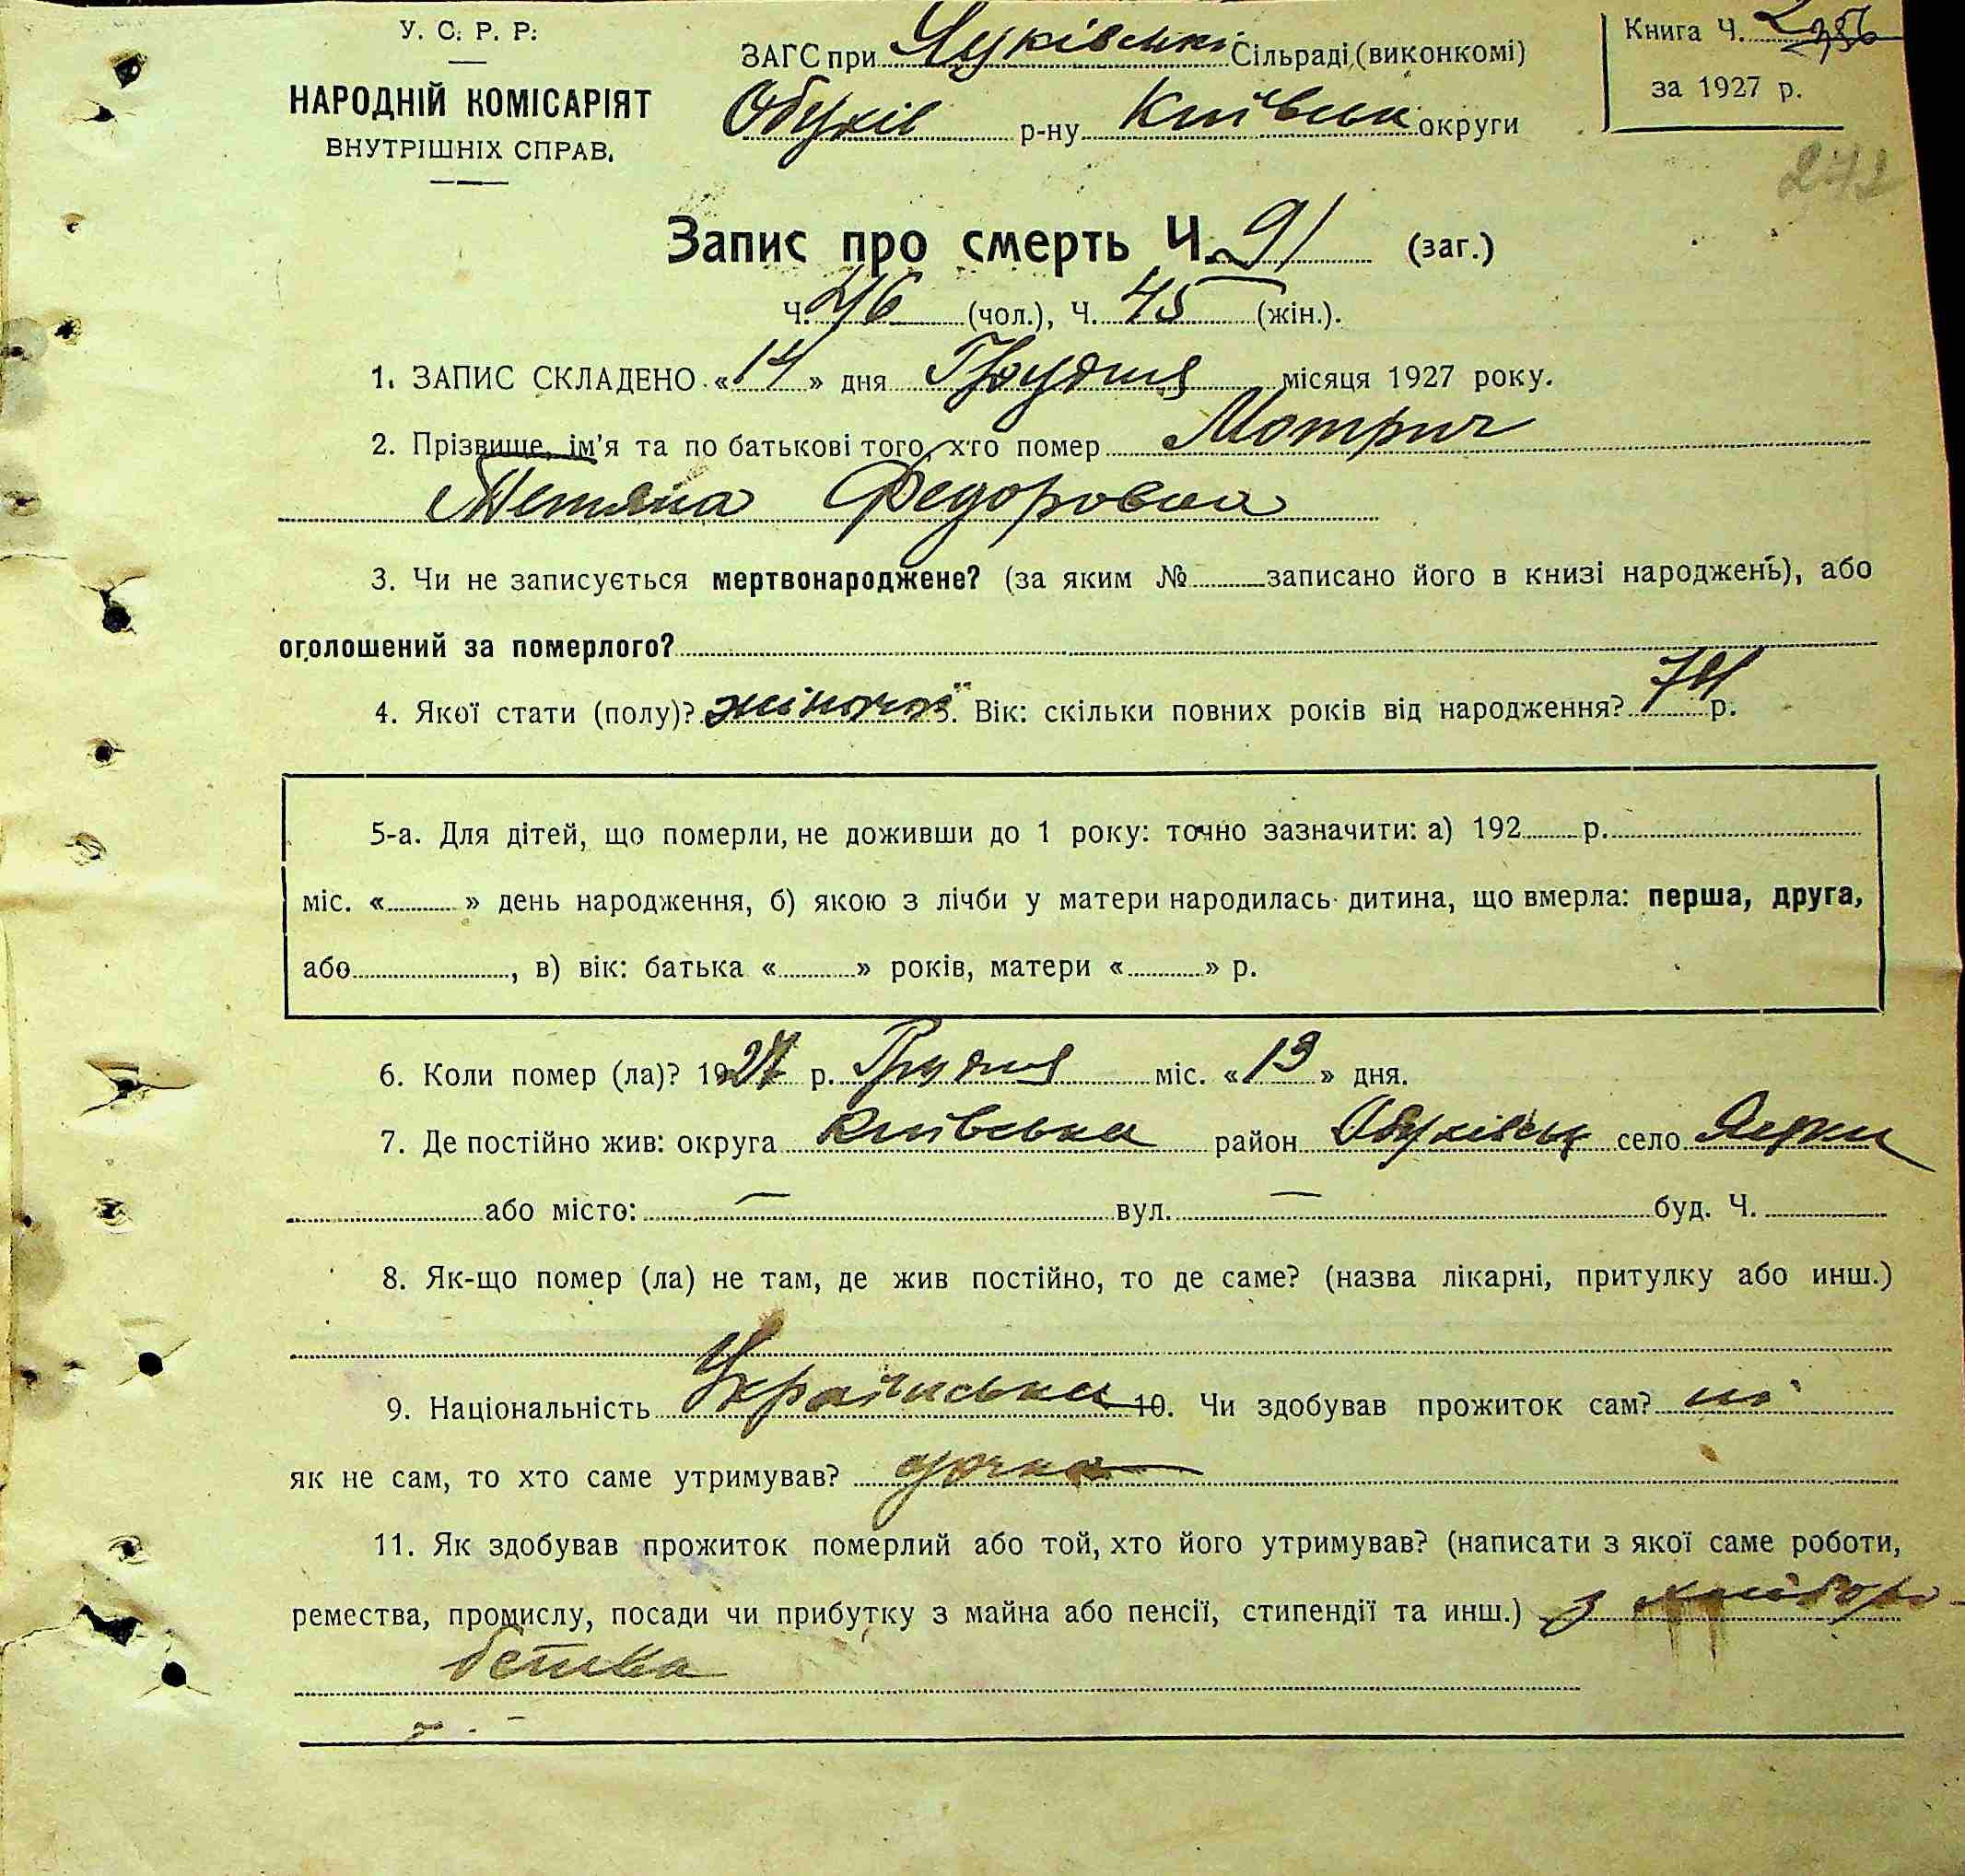 У. С. Р. Р.
НАРОДНІЙ КОМІСАРІЯТ
ВНУТРІШНІХ СПРАВ.
ЗАГС при Сільраді (виконкомі)
Обухів р-ну Київськ округи
Книга Ч. 2
за 1927 р.
Запис про смерть Ч. 91 (заг.)
Ч. 46 (чол.), Ч. 45 (жін.).
1. ЗАПИС СКЛАДЕНО «14» дня Грудня місяця 1927 року.
2. Прізвище, ім'я та по батькові того, хто помер Мотрич
Тетяна Федоровна
3. Чи не записується мертвонароджене? (за яким № записано його в книзі народжень), або
оголошений за померлого?
4. Якої стати (полу)? жіночої. Вік: скільки повних років від народження? 74 р.
5-а. Для дітей, що померли, не доживши до 1 року: точно зазначити: а) 192 р.
міс. « » день народження, б) якою з лічби у матери народилась дитина, що вмерла: перша, друга,
або , в) вік: батька « » років, матери « » р.
6. Коли помер (ла)? 1927 р. Грудня міс. «13» дня.
7. Де постійно жив: округа Київська район Обухівськ село
або місто: — вул. — буд. Ч.
8. Як-що помер (ла) не там, де жив постійно, то де саме? (назва лікарні, притулку або инш.)
9. Національність Українська 10. Чи здобував прожиток сам? ні
як не сам, то хто саме утримував? дочка
11. Як здобував прожиток померлий або той, хто його утримував? (написати з якої саме роботи,
ремества, промислу, посади чи прибутку з майна або пенсії, стипендії та инш.) з хлібороб-
бства